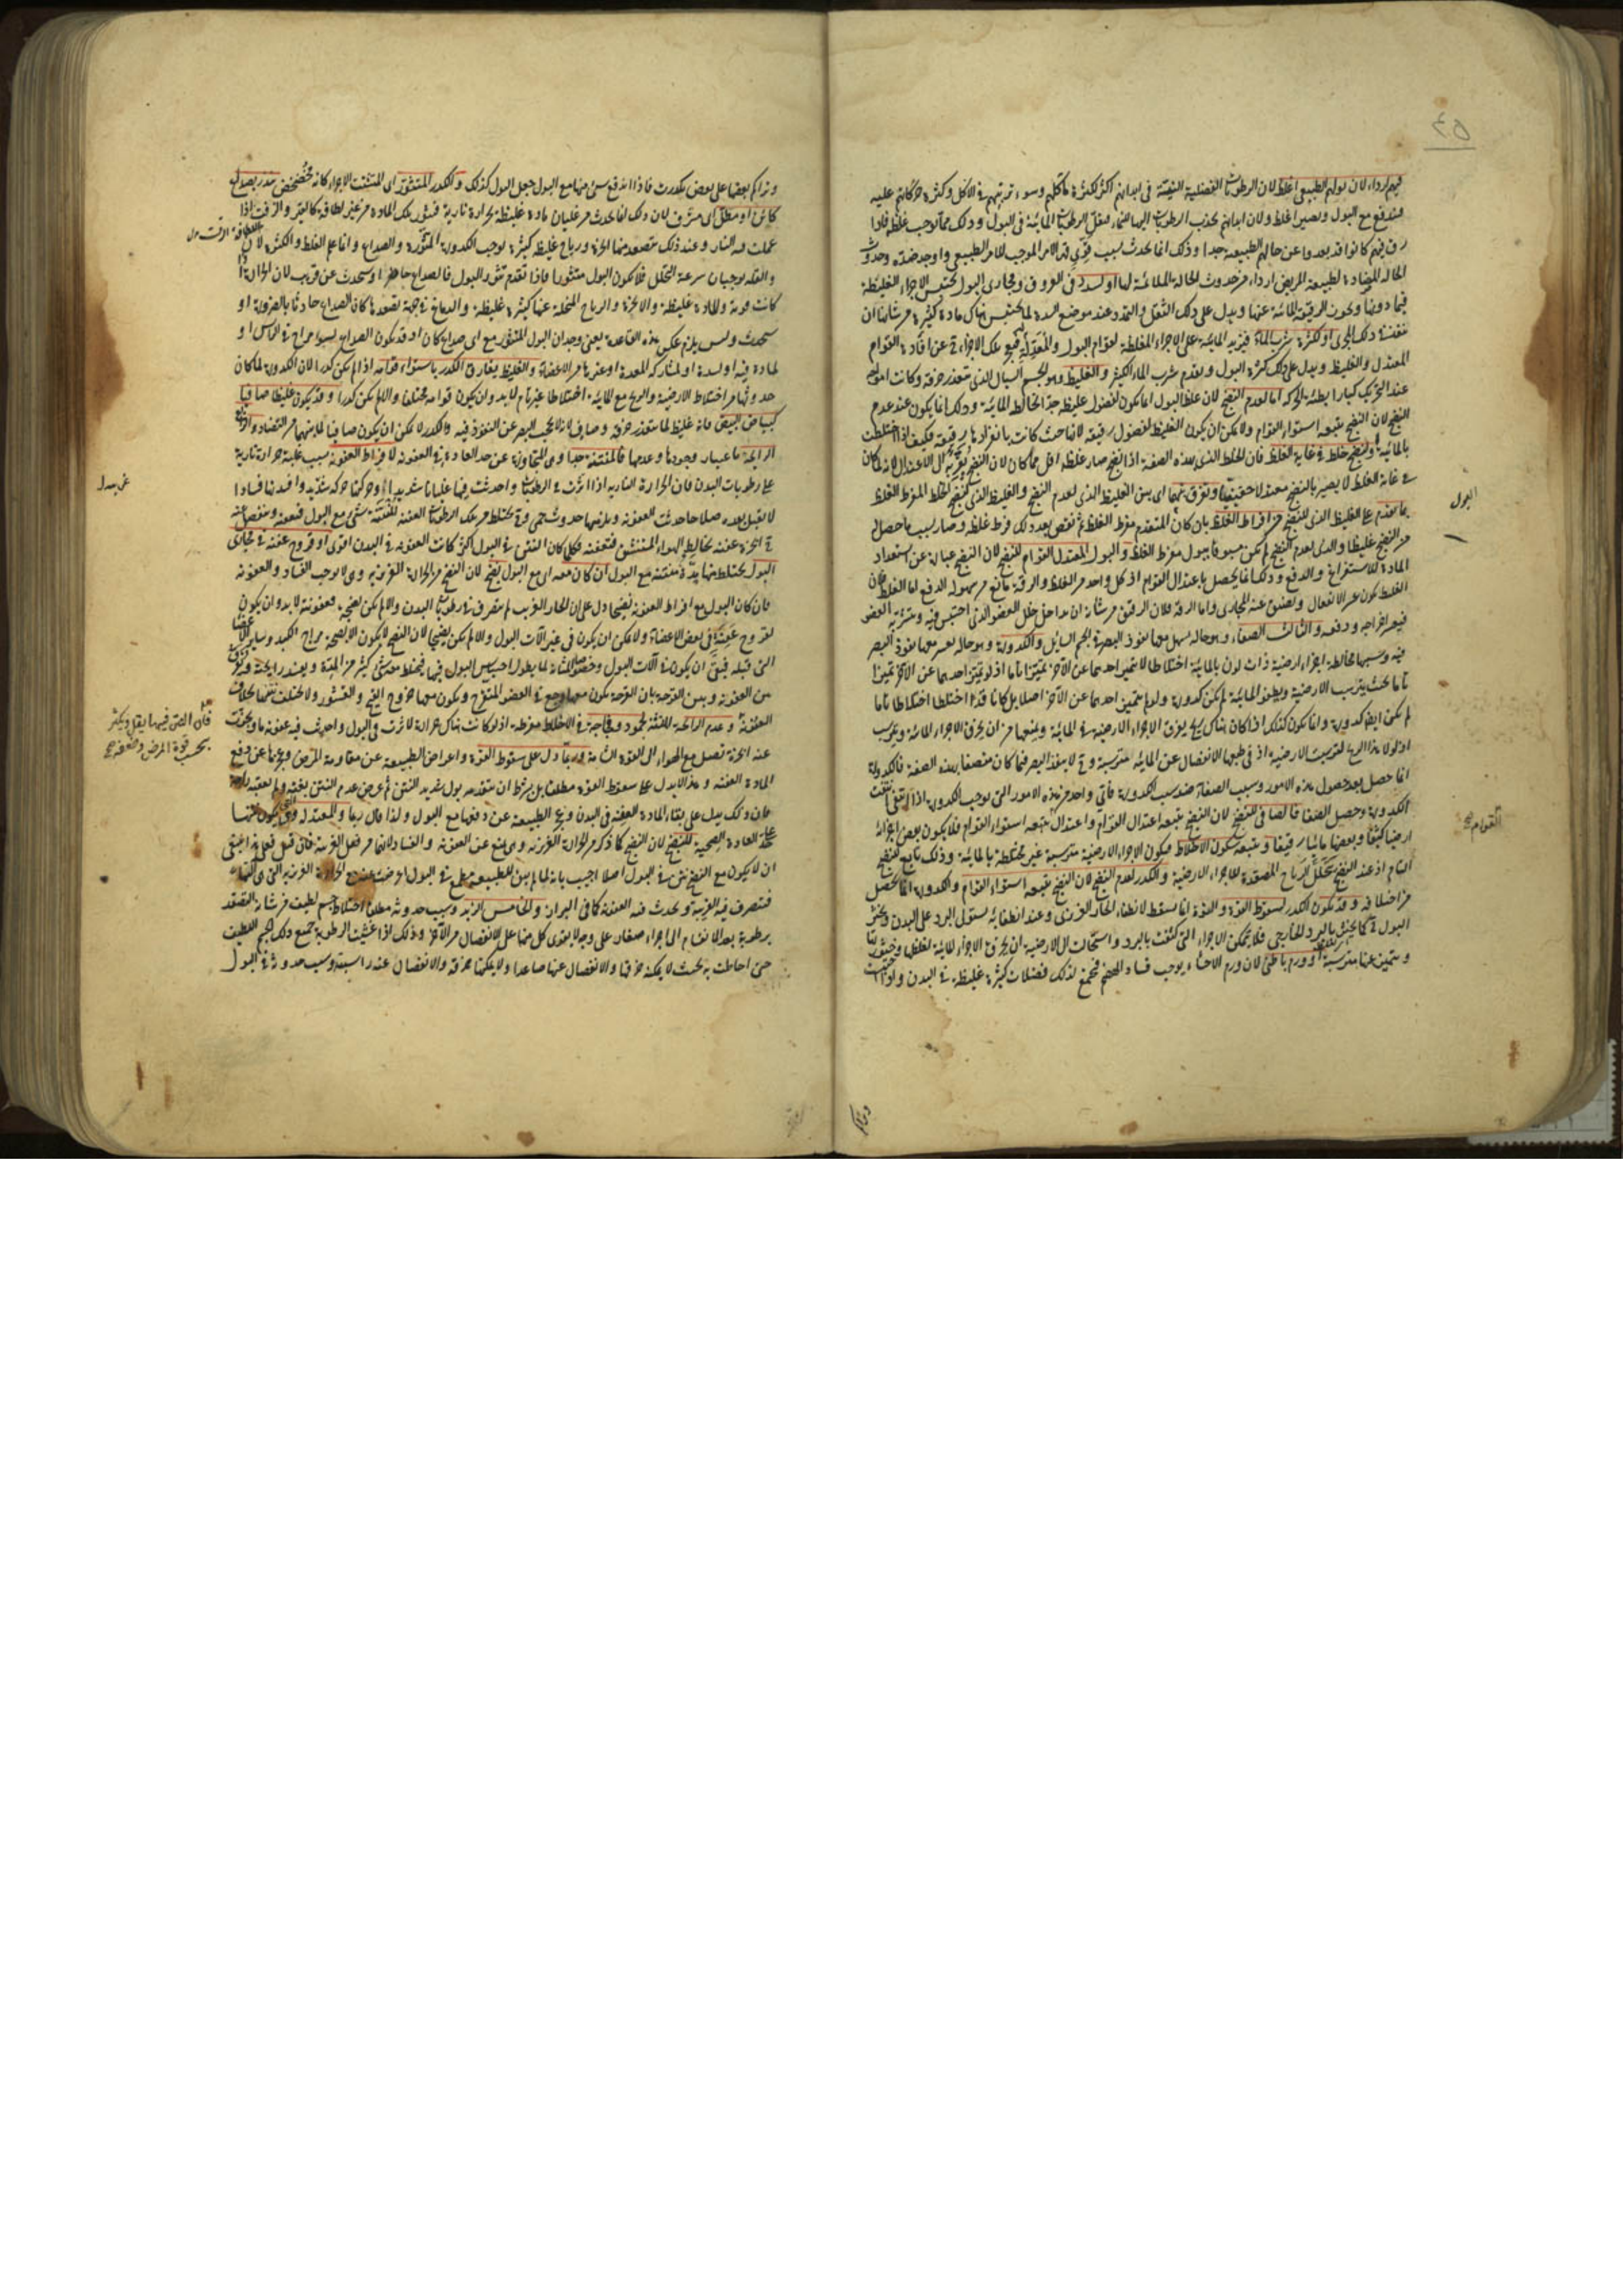 فيهم اردأ لان بولهم الطبيعى اغلظ لان الرطوبات الفضلية النيئة فى ابدانهم اكثر لكثرة مأكلهم وسوء ترتيبهم فى الاكل وكثرة حركاتهم عليه
فيندفع مع البول ويصير اغلظ ولان ابدانهم تجذب الرطوبات اليها للنماء فتقل الرطوبات المائية فى البول وذلك مما يوجب غلظه فاذا
رق فيهم كانوا قد بعدوا عن حالهم الطبيعية جدا وذلك انما يحدث بسبب قوى قهر الامر الموجب للامر الطبيعى واوجد ضده وحدوث
الحالة المضادة لطبيعة المريض اردأ من حدوث الحالة الملائمة لها او لسدد فى العروق ومجارى البول تحتبس الاجزاء الغليظة
فيما دونها ويخرج الرقيقة المائية عنها ويدل على ذلك الثقل والتمدد عند موضع السدة لما يحتبس هناك مادة كثيرة من شانها ان
تنفذ فى ذلك المجرى او لكثرة شرب الماء فيزيد المائية على الاجزاء المغلظة لقوام البول والمعدلة فيبح تلك الاجزاء ح عن افادة القوام
المعتدل والغليظ ويدل على ذلك كثرة البول وتقدم شرب الماء الكثير والغليظ وهو الجسم السيال الذى يتعذر خرقه وكانت امواجه
عند التحريك كبارا بطيئة الحركة اما لعدم النضج لان غلظ البول انما يكون لفضول غليظة جدا تخالط المائية وذلك انما يكون عند عدم
النضج لان النضج يتبعه استواء القوام ولا يمكن ان يكون الغليظ لفضول رقيقة لانها حيث كانت بانفرادها رقيقة فكيف اذا اختلطت
بالمائية او لنضج خلط فى غاية الغلظ فان الخلط الذى بهذه الصفة اذا نضج صار غلظه اقل مما كان لان النضج يقربه الى الاعتدال لانه لما كان
فى غاية الغلظ لا يصير بالنضج معتدلا حقيقيا ويفرق بينهما اى بين الغليظ الذى لعدم النضج والغليظ الذى لنضج الخلط المفرط الغلظ
بما تقدم على الغليظ الذى للنضج من افراط الغلظ بان كان المتقدم مفرط الغلظ ثم نقص بعد ذلك فرط غلظه وصار بسبب ما حصل له
من النضج غليظا والذى لعدم النضج لم يكن مسبوقا ببول مفرط الغلظ والبول المعتدل القوام للنضج لان النضج عبارة عن استعداد
المادة للاستفراغ والدفع وذلك انما يحصل باعتدال القوام اذ كل واحد من الغلظ والرقة مانع من سهولة الدفع اما الغلظ فان
الغليظ يكون عسر الانفعال ويضيق عنه المجارى واما الرقة فلان الرقيق من شانه ان يداخل خلل العضو الذى احتبس فيه ويتشربه العضو
فيعسر اخراجه ودفعه والثالث الصفاء وهو حالة يسهل معها نفوذ البصر فى الجسم السايل والكدورة وهو حالة يعسر معها نفوذ البصر
فيه وسببها مخالطة اجزاء ارضية ذات لون بالمائية اختلاطا لا يتميز احدهما عن الاخر تميزا تاما اذ لو تميز احدهما عن الاخر تميزا
تاما بحيث يترسب الارضية ويطفو المائية لم يكن كدورة ولو لم يتميز احدهما عن الاخر اصلا بل كانا قد اختلطا اختلاطا تاما
لم يكن ايضا كدورة وانما يكون كذلك اذا كان هناك ريح يفرق الاجزاء الارضية فى المائية ويمنعها من ان يخرق الاجزاء المائية ويترسب
اذ لولا هذا الريح لترسبت الارضية اذ فى طبعها الانفصال عن المائية مترسبة وح لا ينفذ البصر فيما كان متصفا بهذه الصفة فالكدورة
انما حصل بعد حصول هذه الامور وسبب الصفاء ضد سبب الكدورة فأى واحد من هذه الامور التى توجب الكدورة اذا انتفى انتفت
الكدورة وحصل الصفا فالصافى للنضج لان النضج يتبعه اعتدال القوام واعتداله يتبعه استواء القوام فلا يكون بعض اجزائه
ارضيا كثيفا وبعضها مائيا رقيقا ويتبعه سكون الاخلاط فيكون الاجزاء الارضية مترسبة غير مختلطة بالمائية وذلك تابع للنضج
التام اذ عند النضج يتحلل الرياح المصعدة للاجزاء الارضية والكدر لعدم النضج لان النضج يتبعه استواء القوام والكدورة انما يحصل
من اختلافه وقد يكون الكدر لسقوط القوة والقوة انما يسقط لانطفاء الحار الغريزى وعند انطفائه يستولى البرد على البدن ويخثر
البول ح كما يخثر بالبرد الخارجى فلا يتمكن الاجزاء التى كثفت بالبرد واستحالت الى الارضية ان يخرق الاجزاء المائية لغلظها وخثورتها
ويتميز عنها مترسبة او ورم باطنى لان ورم الاحشاء يوجب فساد الهضم فيجمع لذلك فضلات كثيرة غليظة فى البدن
البول
القوام
وتراكم بعضها على بعض تكدرت فاذا اندفع شىء منها مع البول جعل البول كذلك والكدر المتثور اى المتشتت الاجزاء كانه مخضخض ينذر بصداع
كائن او مظل اى مشرف لان ذلك انما يحدث من غليان مادة غليظة بحرارة نارية فيثور تلك المادة من غير لطافة كالقير والزفت اذا
عملت فيه النار وعند ذلك يتصعد منها ابخرة ورياح غليظة كثيرة توجب الكدورة المتثورة والصداع وانما علم الغلظ والكثرة لان
والقلة يوجبان سرعة التحلل فلا يكون البول متثورا فاذا تقدم تثور البول فالصداع حاضر او سيحدث عن قريب لان الحرارة اذا
كانت قوية والمادة غليظة والابخرة والرياح المنحلة عنها كثيرة غليظة والدماغ فى جهة تصعدها كان الصداع حادثا بالضرورة او
سيحدث وليس يلزم عكس هذه القاعدة يعنى وجدان البول المتثور مع اى صداع كان اذ قد يكون الصداع لسوء مزاج فى الراس او
لمادة فيه او لسدة او لمشاركة المعدة او غيرها من الاعضاء والغليظ يفارق الكدر باستواء قوامه اذا لم يكن كدرا لان الكدورة لما كان
حدوثها من اختلاط الارضية والريح مع المائية اختلاطا غير تام لا بد وان يكون قوامه مختلفا والا لم يكن كدرا وقد يكون غليظا صافيا
كبياض البيض فانه غليظ لما يتعذر خرقه وصاف لانه لا يحجب البصر عن النفوذ فيه والكدر لا يمكن ان يكون صافيا لما بينهما من التضاد والرابع
الرائحة باعتبار وجودها وعدمها فالمنتنة جدا وهى المتجاوزة عن حد العادة فى العفونة لافراط العفونة بسبب غلبة حرارة نارية
على رطوبات البدن فان الحرارة النارية اذا اثرت فى الرطوبات واحدثت فيها غليانا شديدا وحركتها حركة شديدة وافسدتها فسادا
لا يقبل بعده صلاحا حدثت العفونة ويلزمها حدوث حمى وح يختلط من تلك الرطوبات العفنة المنتنة شىء مع البول فتعفنه وينفصل عنه
ح ابخرة عفنة تخالط الهواء المستنشق فتعفنه فكلما كان النتن فى البول اكثر كانت العفونة فى البدن اقوى او قروح عفنة فى مجارى
البول يختلط منها مدة منتنة مع البول ان كان معه اى مع البول نضج لان النضج من الحرارة الغريزية وهى لا توجب الفساد والعفونة
فان كان البول مع افراط العفونة نضيجا دل على ان الحار الغريب لم يتصرف فى رطوبات البدن والا لم يكن نضيجا فعفونته لا بد وان يكون
لقروح عفنة فى بعض الاعضاء ولا يمكن ان يكون فى غير الات البول والا لم يكن نضيجا لان النضج لا يكون الا بصحة مزاج الكبد وساير الاعضاء
التى قبله فبقى ان يكون فى الات البول وخصوصا المثانة لما يطول احتباس البول فيها فيختلط معه شىء كثير من المدة ويفسد رايحته ويفرق
بين العفونة وبين القرحة بان القرحة يكون معها وجع فى العضو المتقرح ويكون معها خروج القيح والقشور ولا يختلف نتنها بخلاف
العفونة وعدم الرائحة المنتنة لجمود وفجاجة فى الاخلاط مفرطة اذ لو كانت هناك حرارة لاثرت فى البول واحدثت فيه عفونة ما وتبخرت
عنه ابخرة تصل مع الهواء الى القوة الشامة وربما دل على سقوط القوة واعراض الطبيعة عن مقاومة المرض وعجزها عن دفع
المادة العفنة وهذا لا يدل على سقوط القوة مطلقا بل بشرط ان يتقدمه بول شديد النتن ثم عرض عدم النتن بغتة ولم يعقبه راحة
فان ذلك يدل على بقاء المادة العفنة فى البدن وعجز الطبيعة عن دفعها مع البول ولذا قال ربما والمعتدلة وهى التى يكون نتنها
على حد العادة الصحية للنضج لان النضج كما ذكر من الحرارة الغريزية وهى تمنع عن العفونة والفساد لانهما من فعل الغريبة فان قيل فعلى هذا ينبغى
ان لا يكون مع النضج نتن فى البول اصلا اجيب بانه لما لم يبق للطبيعة طمع فى البول اعرضت عنه مع الحرارة الغريزية التى هى آلتها
فتتصرف فيه الغريبة ويحدث فيه العفونة كما فى البراز والخامس الزبد وسبب حدوثه مطلقا اختلاط جسم لطيف من شانه التصعد
برطوبة بعد الانقسام الى اجزاء صغار على وجه لا يقوى كل منهما على الانفصال من الاخر وذلك اذا غشيت الرطوبة جميع ذلك الجسم اللطيف
حتى احاطت به بحيث لا يمكنه خرقها والانفصال عنها صاعدا ولا يمكنها خرقه والانفصال عنه راسبة وسبب حدوثه فى البول
فان النتن فيهما يقل ويكثر
بحسب قوة المرض وضعفه